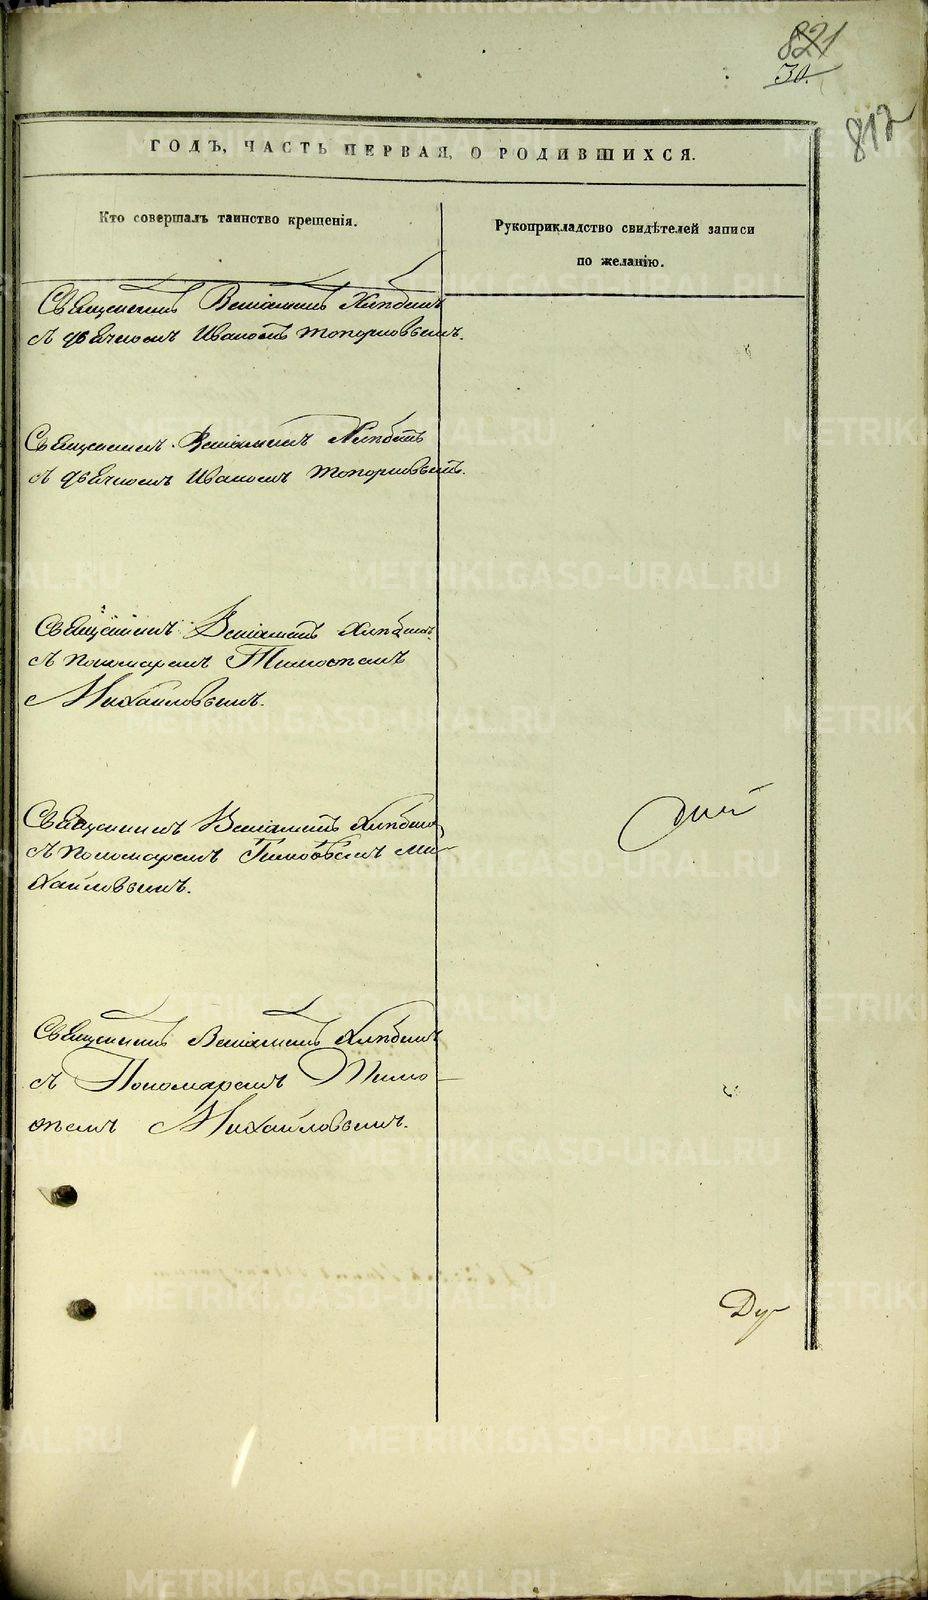 821
30.
812
ГОДЪ, ЧАСТЬ ПЕРВАЯ, О РОДИВШИХСЯ.
Кто совершалъ таинство крещенія.
Рукоприкладство свидѣтелей записи
по желанію.
Священникъ Веніаминъ Хлѣбинъ
съ дьячкомъ Иваномъ Топорковымъ.
Священникъ Веніаминъ Хлѣбинъ
съ дьячкомъ Иваномъ Топорковымъ.
Священникъ Веніаминъ Хлѣбинъ
съ пономаремъ Тимоѳеемъ
Михайловымъ.
Священникъ Веніаминъ Хлѣбинъ
съ пономаремъ Тимоѳеемъ Ми-
хайловымъ.
Священникъ Веніаминъ Хлѣбинъ
съ Пономаремъ Тимо-
ѳеемъ Михайловымъ.
Ду-
METRIKI.GASO-URAL.RU